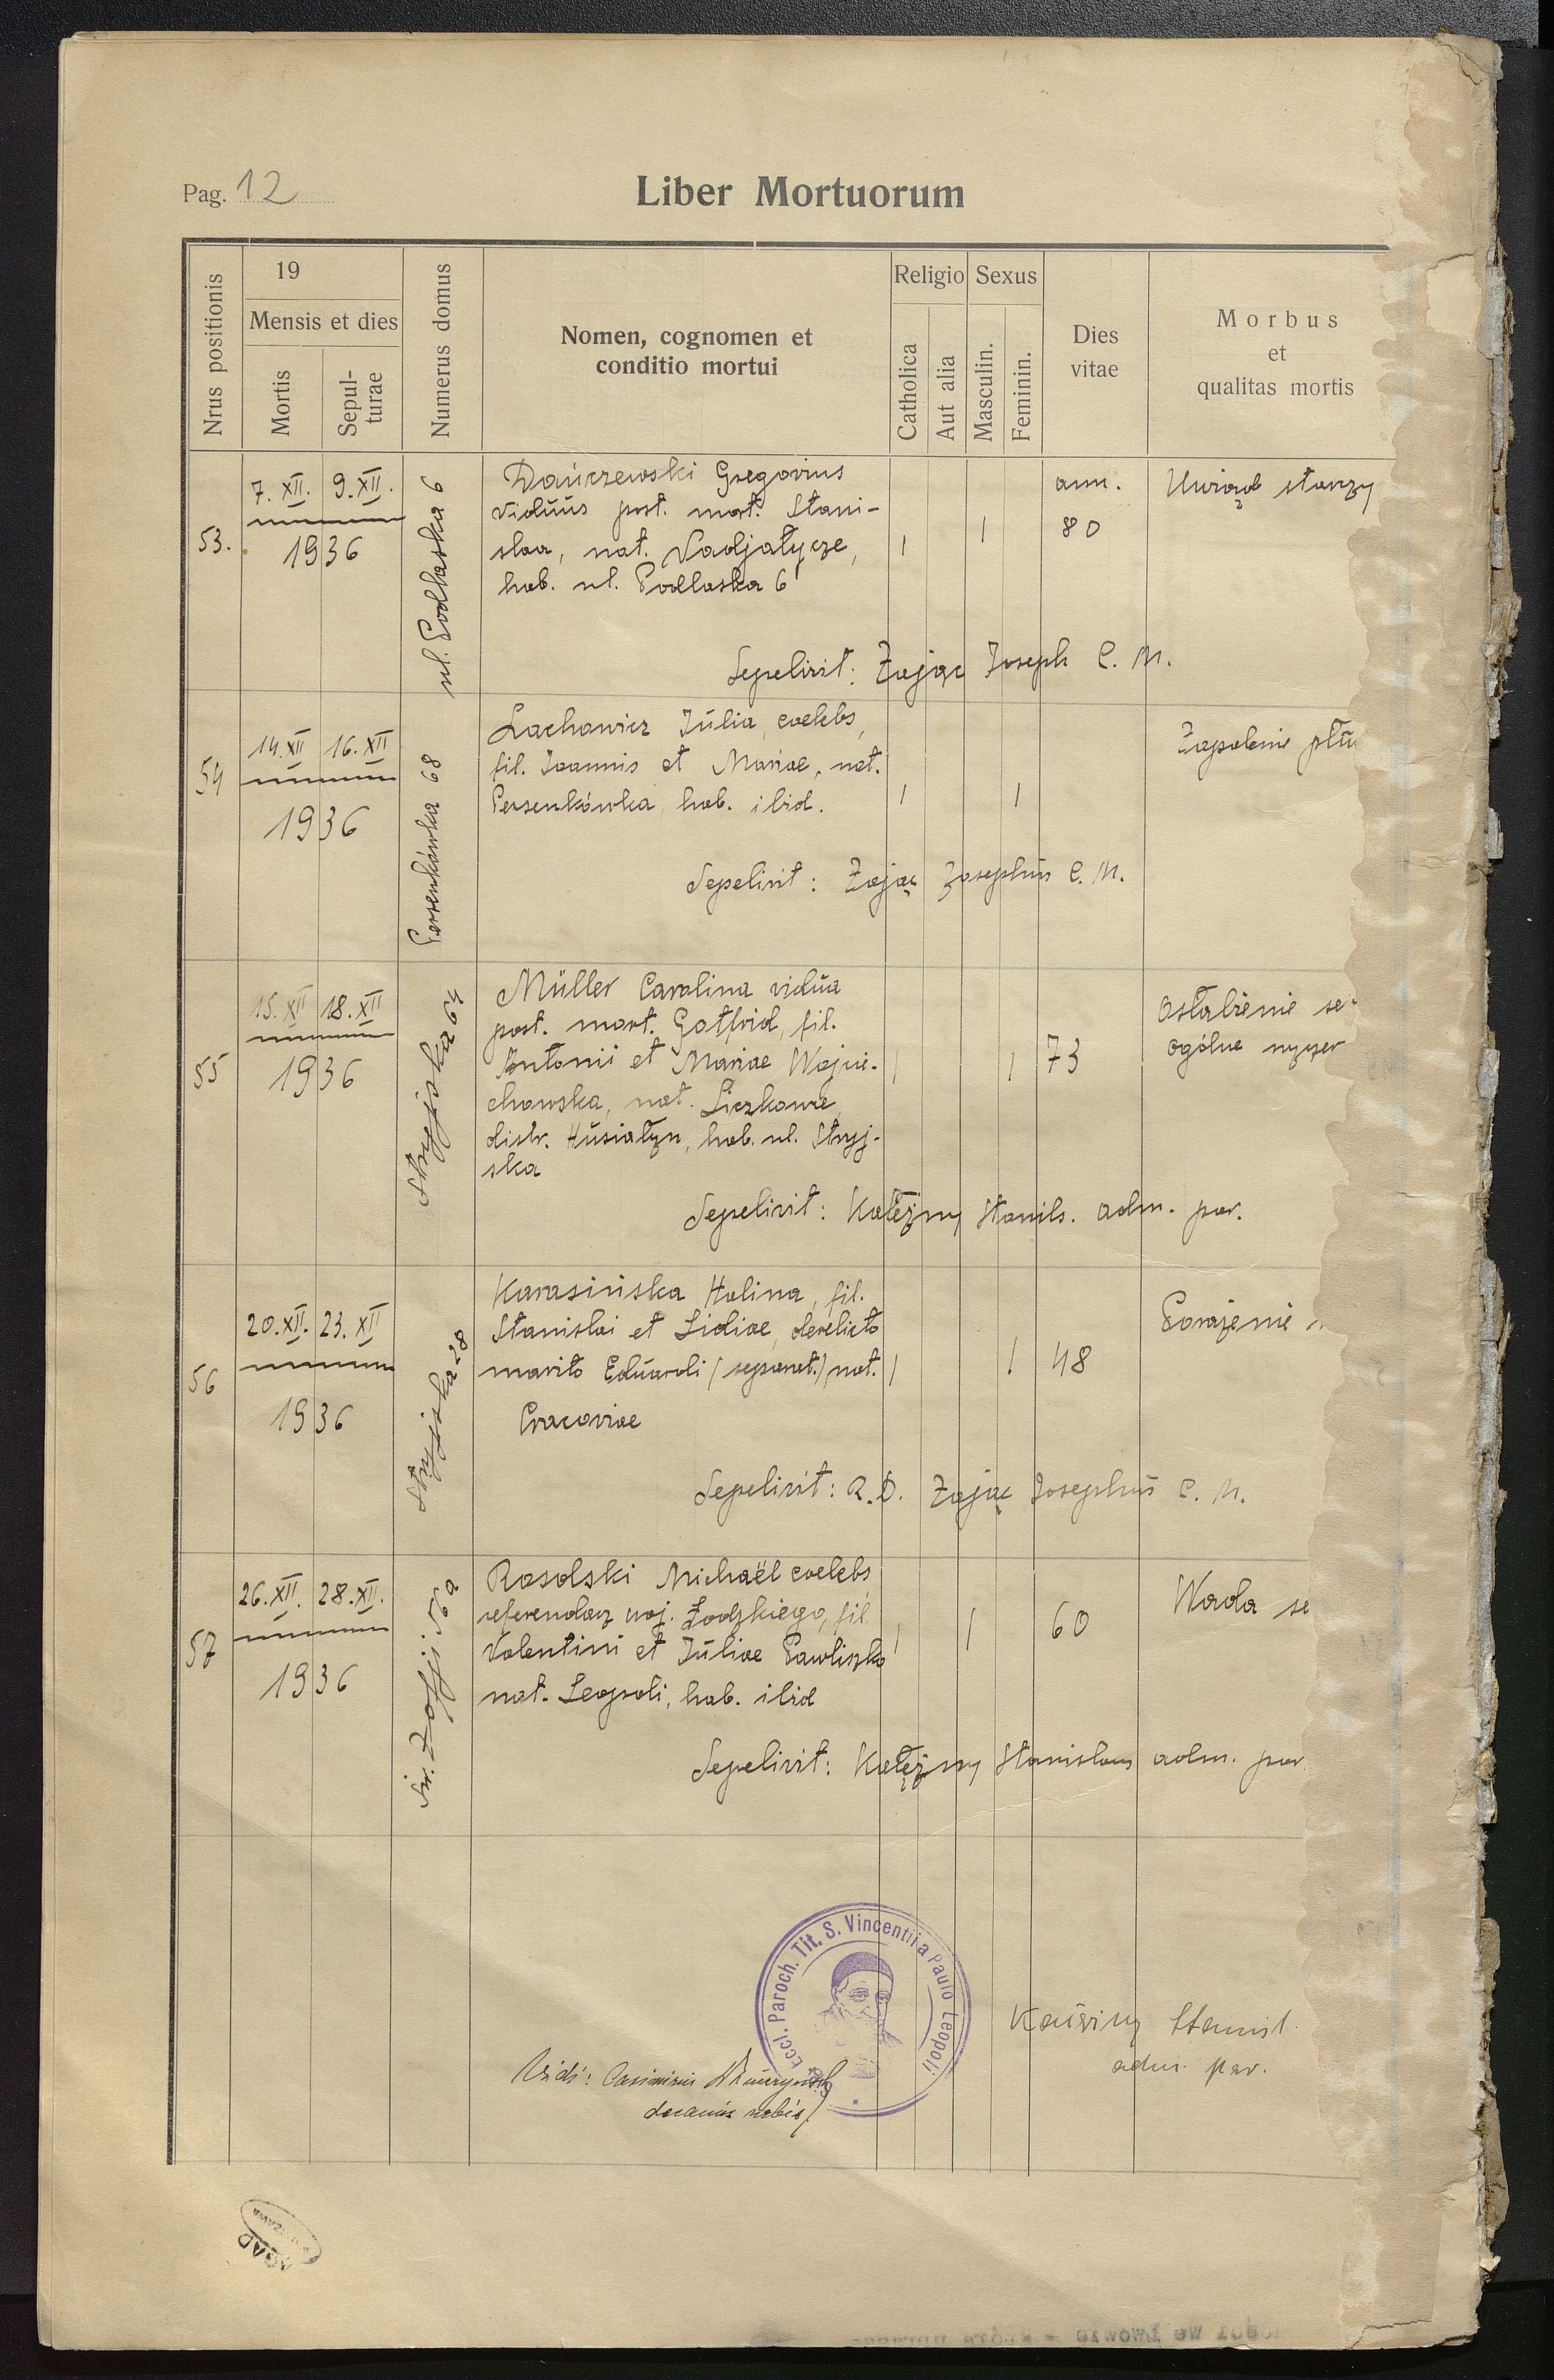 Pag. 12
Liber Mortuorum
Nrus positionis
19
Mensis et dies
Mortis
Sepul-
turae
Numerus domus
Nomen, cognomen et
conditio mortui
Religio
Catholica
Aut alia
Sexus
Masculin.
Feminin.
Dies
vitae
Morbus
et
qualitas mortis
53.
7. XII. 9. XII.
1936
ul. Podlaska 6
Dańczewski Gregorius
viduus post. mort. Stani-
slaa, nat.
hab. ul. Podlaska 6
ann.
80
Uwiąd starzy
Sepelivit: Zając Joseph C. M.
54
14. XII 16. XII
1936
Persenkówka 68
Lachowicz Júlia, coelebs,
fil. Joannis et Mariae, nat.
Persenkówka, hab. ibid.
Zapalenie płu
Sepelivit: Zając Josephus C. M.
55
15. XII 18. XII
1936
Stryjska
Müller Carolina vidua
post. mort. Gotfrid, fil.
Antonii et Mariae Wojcie-
chowska, nat. Liczkowce,
distr. Husiatyn, hab. ul. Stryj-
ska
73
Osłabienie se
ogólne wyczer
Sepelivit: Kałężny Stanils. adm. par.
56
20. XII. 23. XII
1936
Stryjska 28
Karasińska Halina, fil.
Stanislai et Lidiae, derelicto
marito Eduardi (separat.) nat.
Cracoviae
48
Porażenie
Sepelivit: R. D. Zając Josephus C. M.
57
26. XII. 28. XII.
1936
św. Zofji
Rosolski Michaël coelebs
referendarz woj. Łodzkiego, fil
Valentini et Júliae Pawliszko
nat. Leopoli, hab. ibid
60
Wada se
Sepelivit: Kałężny Stanislaus adm. par.
Eccl. Paroch. Tit. S. Vincentii a Paulo Leopoli
Vidi: Casimirus
decanus urbis
Stanisł.
adm. par.
AGAD